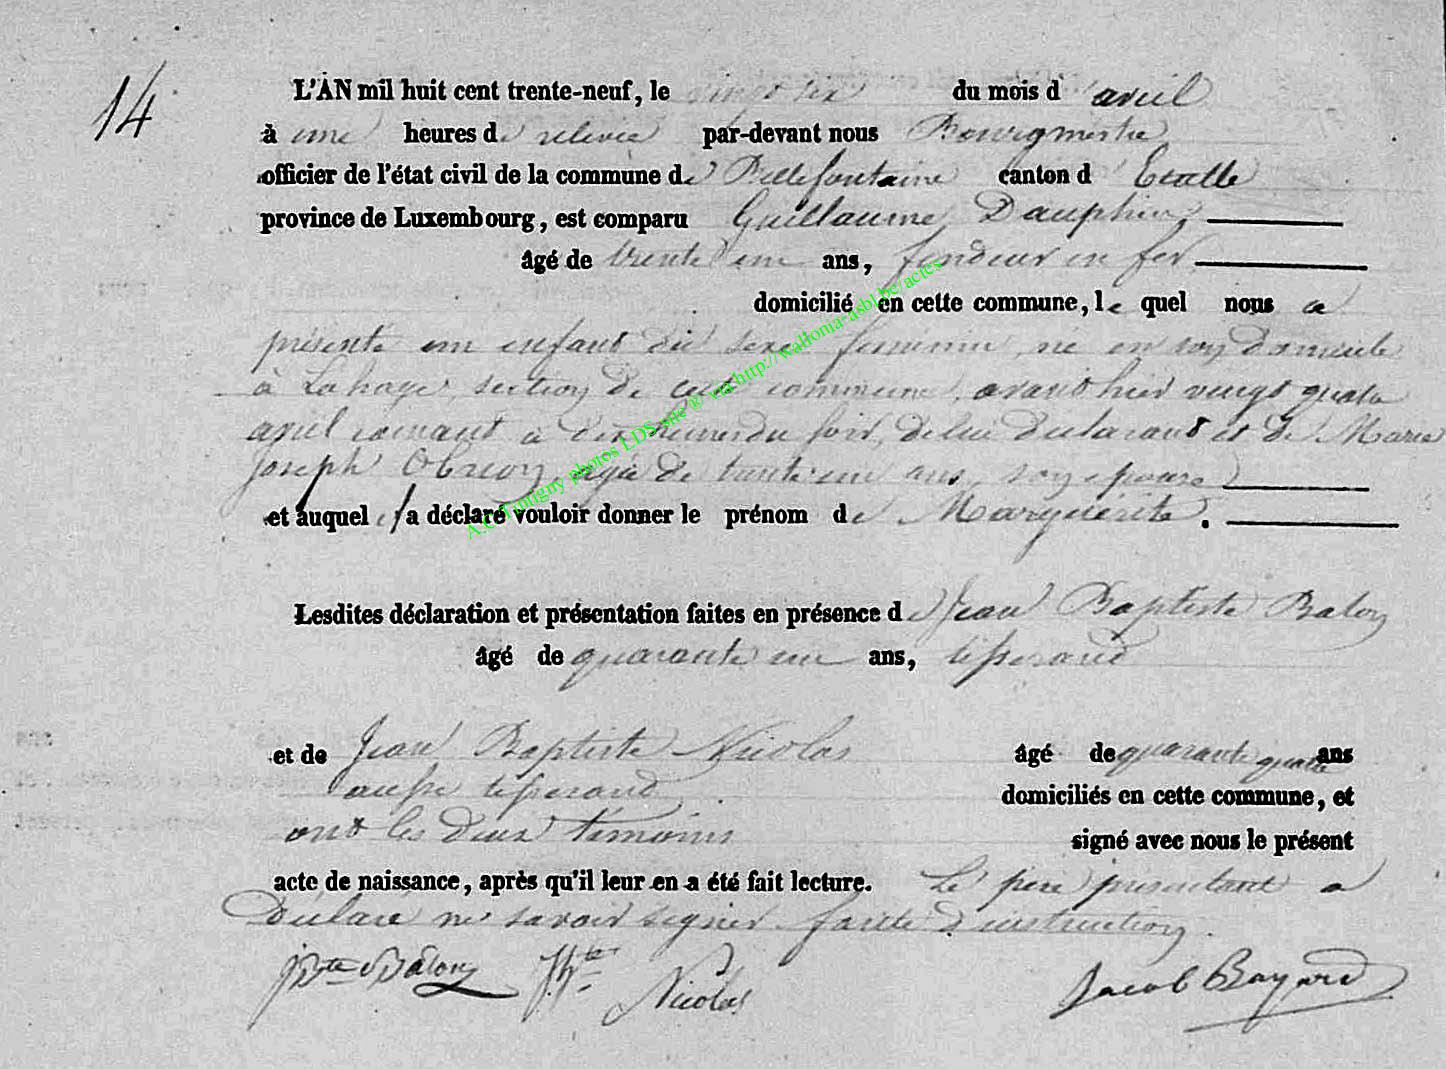 14
L'AN mil huit cent trente-neuf, le vingt six du mois d'avril
à une heures de relevée par-devant nous Bourgmestre
officier de l'état civil de la commune de Bellefontaine canton d'Etalle
province de Luxembourg, est comparu Guillaume Dauphin,
âgé de trente un ans, fondeur en fer
domicilié en cette commune, lequel nous a
présenté un enfant du sexe feminin, né en son domicile
à Lahage section de cette commune, avant hier vingt quatre
avril courant à dix heures du soir, de lui déclarant et de Marie
Joseph Obrion, agée de trente un ans, son épouse
et auquel il a déclaré vouloir donner le prénom de Marguerite.
Lesdites déclaration et présentation faites en présence de Jean Baptiste Balon
âgé de quarante un ans, tisserand
et de Jean Baptiste Nicolas âgé de quarante quatre ans
aussi tisserand domiciliés en cette commune, et
ont les deux témoins signé avec nous le présent
acte de naissance, après qu'il leur en a été fait lecture. Le père présentant a
Déclaré ne savoir signer faute d'instruction.
JBte Balon JBte Nicolas Jacob Bayard
A.C. Tintigny photos LDS site © via http://wallonia-asbl.be/actes